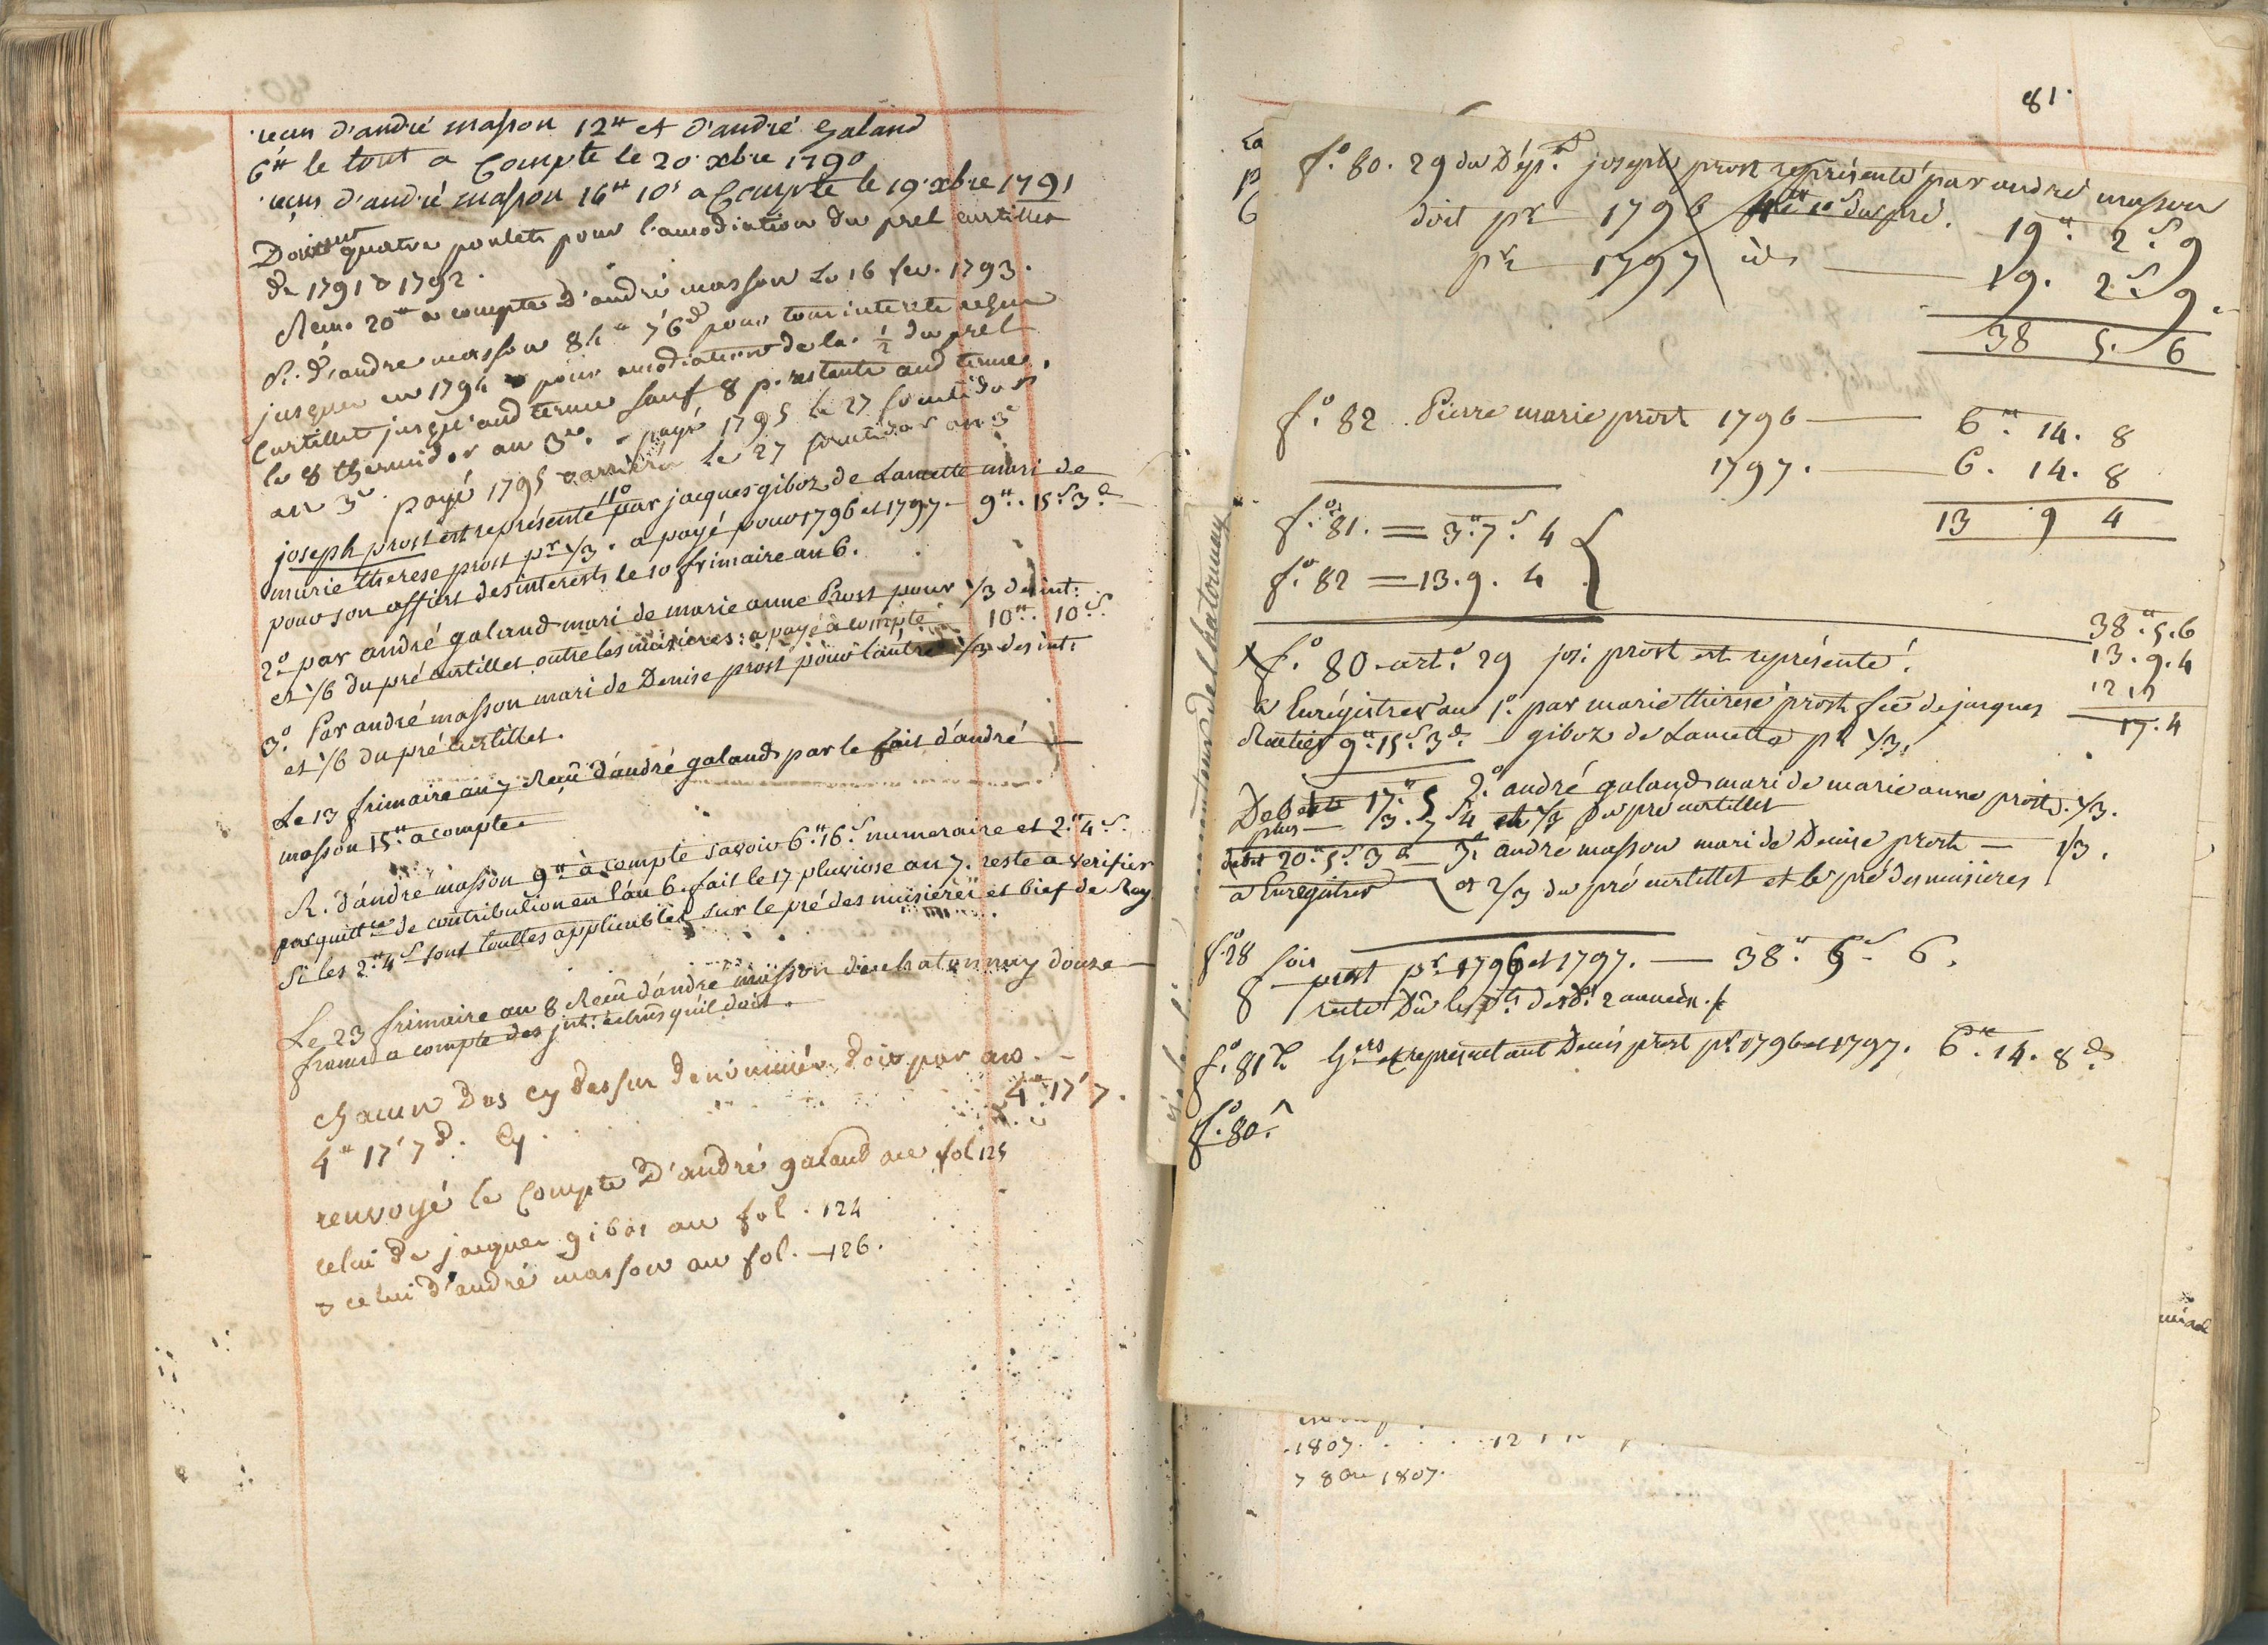 reçus d'andré masson 12ᵗᵗ et d'andré Galand
6ᵗᵗ le tout a Compte le 20 xbre 1790
reçus d'andré masson 16ᵗᵗ 10ˢ a Compte le 19 xbre 1791
Doivent quatre poulets pour l'amodiation du prel curtillet
de 1791 & 1792.
Reçu 20ᵗᵗ a compte D'andré masson Le 16 fev. 1793.
R. d'andre masson 84ᵗᵗ 7ˢ 6ᵈ pour tous interets
jusques en 1794 & pour amodiation de la ½ du prel
Curtillet jusqu'aud terme sauf 8 p. restants aud terme.
le 8 thermidor an 3ᵉ. payé 1795 le 27 fructidor
an 3ᵉ. payé 1795 le 27 fructidor an 3ᵉ
joseph prost est représenté 1º par jacques giboz de Lamette mari de
marie therese prost pʳ 1/3. a payé pour 1796 et 1797 — 9ᵗᵗ. 15ˢ 3ᵈ
pour son affert des interests le 10 frimaire an 6.
2º par andré galand mari de marie anne Prost pour 1/3 des int.
et 1/6 du pré curtillet outre les muisieres : a payé a compte 10ᵗᵗ. 10ˢ
3º. Par andré masson mari de Denise prost pour l'autre 1/3 des int.
et 1/6 du pré curtillet.
Le 13 frimaire an 7 Reçu d'andré galand par le fait d'andré
masson 15ᵗᵗ a compte
R. d'andré masson 9ᵗᵗ à compte savoir 6ᵗᵗ 16ˢ numeraire et 2ᵗᵗ 4ˢ
par quittᶜᵉ de contribution en l'an 6. fait le 17 pluviose an 7. reste a verifier
Si les 2ᵗᵗ 4ˢ sont touttes applicables sur le pré des muisieres et bief de Roy
Le 23 frimaire an 8 Reçu d'andré masson de chatonnay douze
francs a compte des int. echus qu'il doit.
chacun Des cy dessus denommés, doit par an. —
4ᵗᵗ 17ˢ 7ᵈ. Cy. 4ᵗᵗ 17ˢ 7.
renvoyé le Compte D'andré galand au fol 125
celui de jacques gibos au fol. 124
& celui d'andré masson au fol. — 126.
81.
fº. 80. 29 du Dépᵗ joseph prost représenté par andré masson
doit pʳ 1796 du pré. 19ᵗᵗ. 2ˢ 9
pʳ 1797 id. 19. 2ˢ 9.
38 5. 6
fº. 82 Pierre marie prost 1796 — 6ᵗᵗ. 14. 8
1797. — 6. 14. 8
13 9 4
fº. 81. = 3ᵗᵗ. 7ˢ. 4
fº. 82 = 13. 9. 4
38ᵗᵗ. 5. 6
13. 9. 4
17. 4
fº. 80 art. 29 jos. prost est représenté.
a Enrégistrer au 1º. par marie therese prost fᵉ de jacques
9ᵗᵗ 15ˢ 3ᵈ. giboz de Lamette pʳ 1/3.
17ᵗᵗ 5 2º. andré galand mari de marie anne prost. 1/3.
plus 3. 7ˢ 4 du pré curtillet
20ᵗᵗ 5ˢ 3ᵈ 3º andré masson mari de Denise prost — 1/3.
a Enregistrer et 2/3 du pré curtillet et le pré des muisieres
fº. 28
prost pʳ 1796 et 1797. — 38ᵗᵗ. 5ˢ 6.
reste Dû les 2 années.
fº. 81 representant Denis prost pʳ 1796 et 1797. 6ᵗᵗ. 14. 8ᵈ
fº. 80.
1807.
7 8bre 1807.